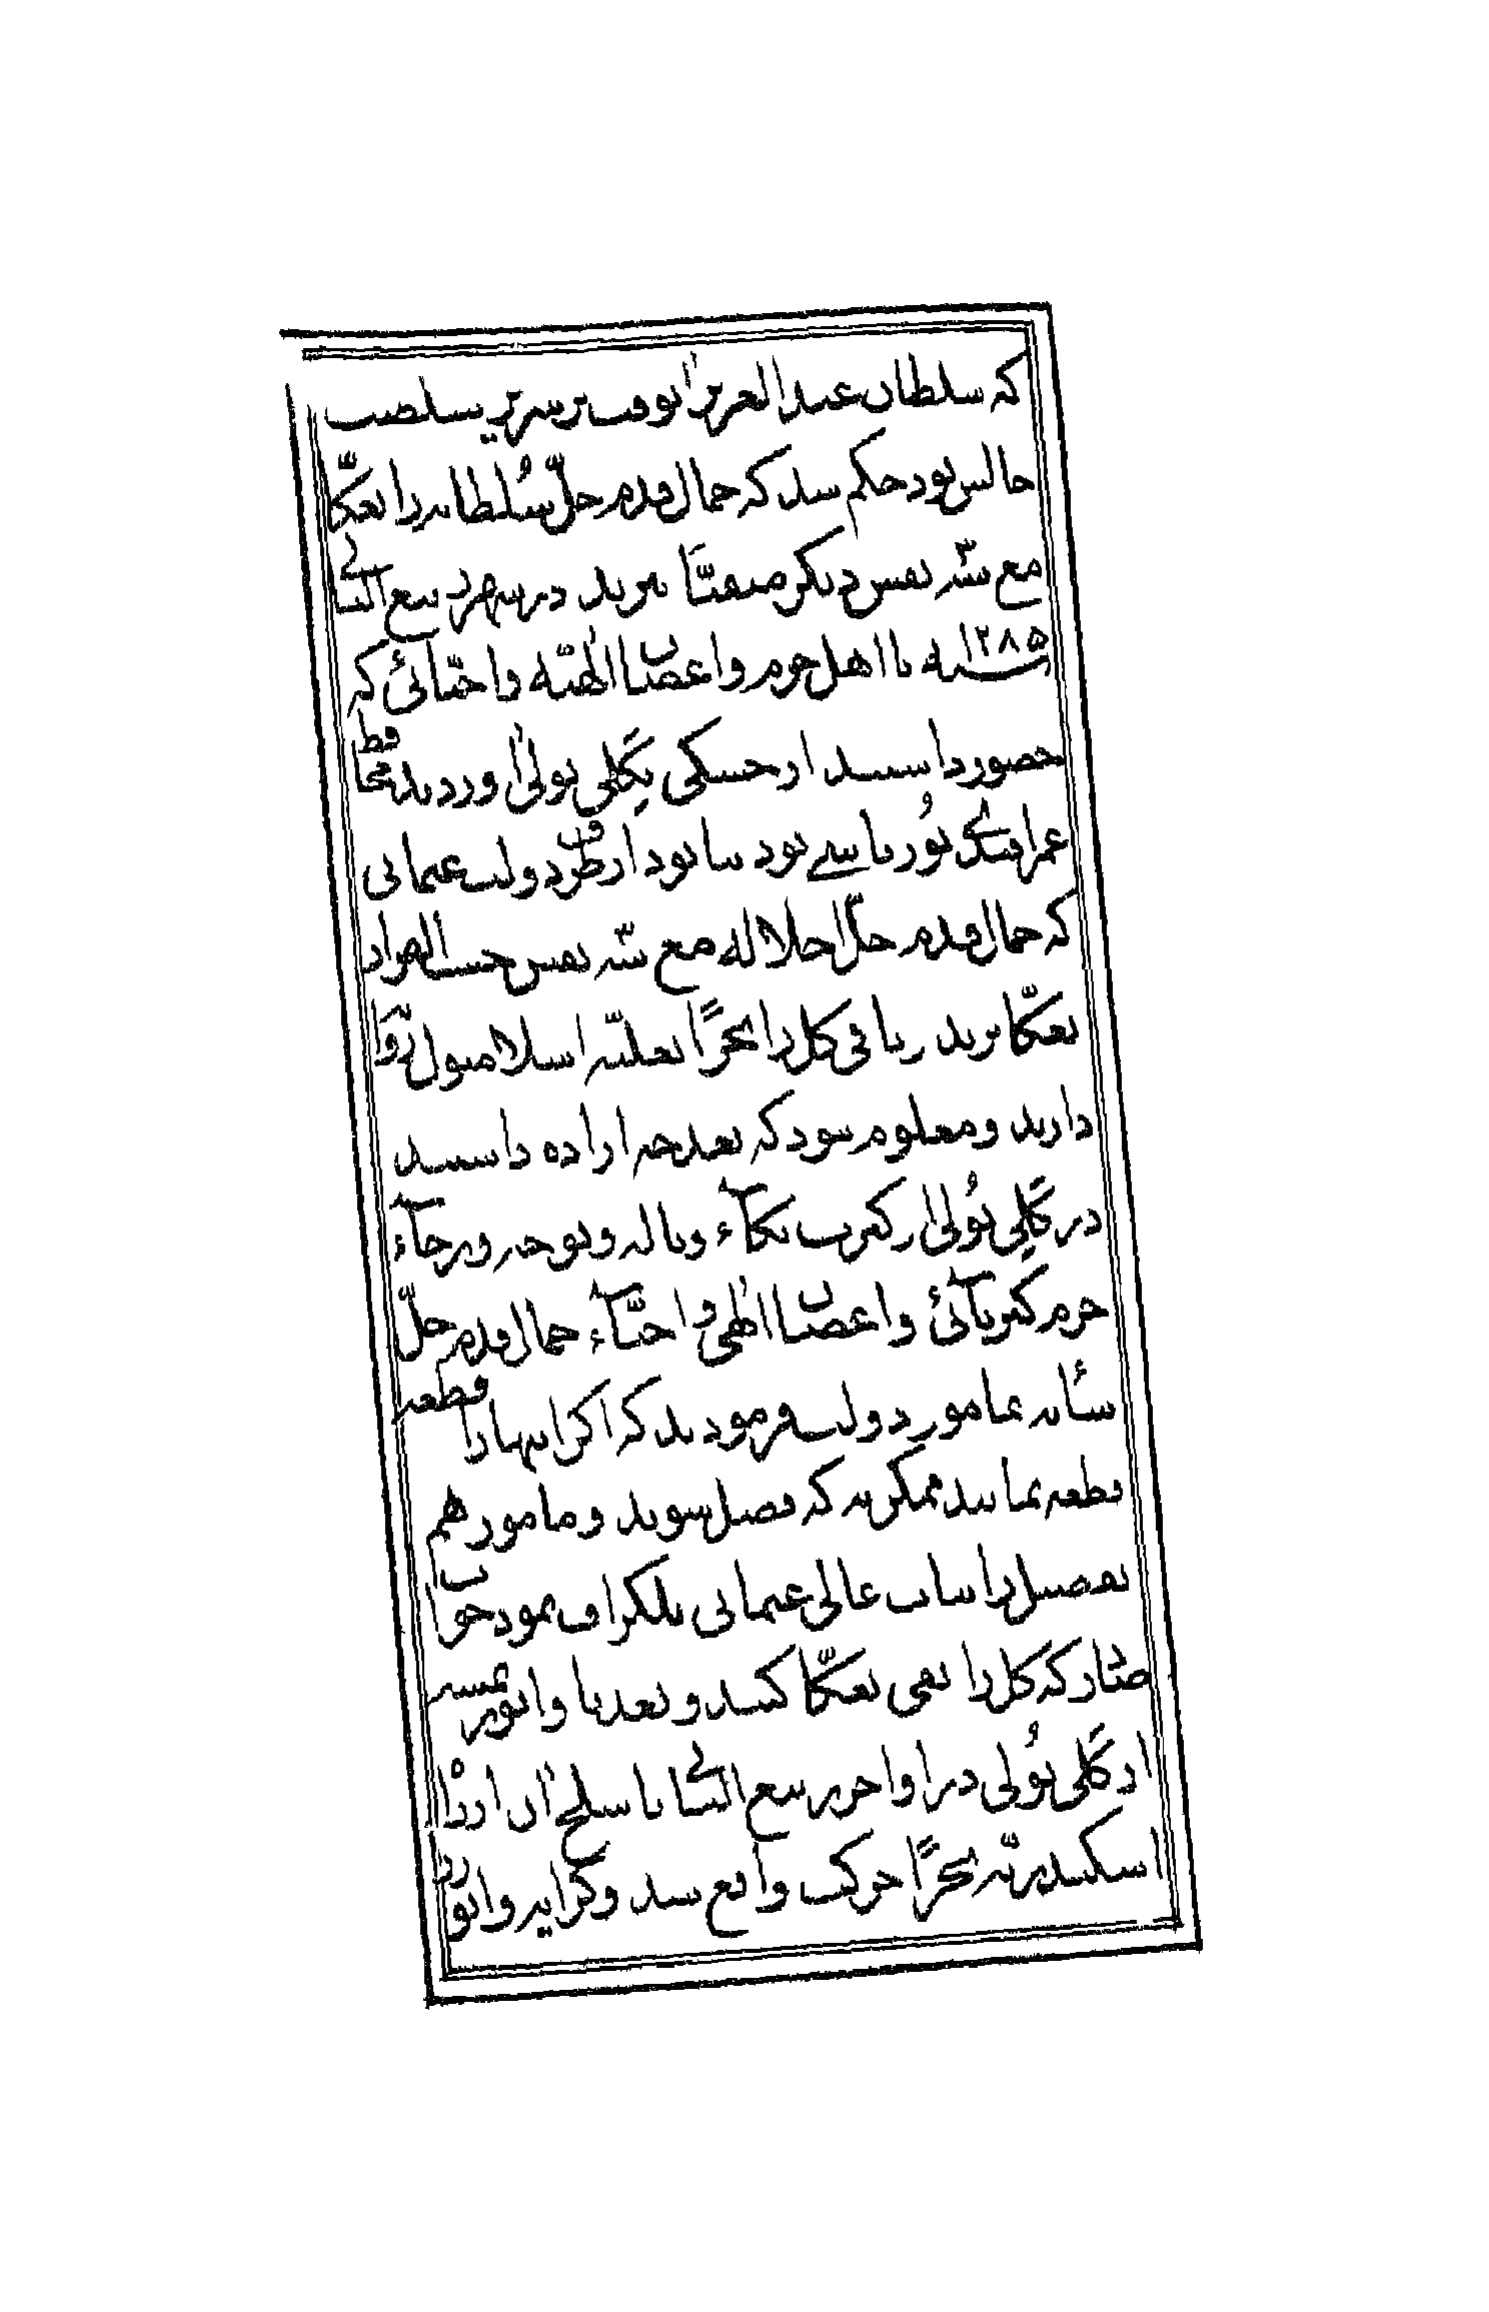 که سلطان عبدالعزیز انوقت بر سریر سلطنت
جالس بود حکم شد که جمال قدم جلّ سُلطانه را بعکّا
مع سّه نفس دیگر منفیّاً ببرند در شهر ربیع الثّانی
سنه ۱۲۸۵ با اهل حرم و اغصان الٰهیّه و احبّائی که
حضور داشتند از خشکی بگلی بولی آوردند محافظ
عمر افندی بُورباشی بود بنا بود از طرف دولت عثمانی
که جمال قدم جلّ اجلاله مع سّه نفس حسب المراد
بعکّا برند و باقی کل را بحراً بعلیّه اسلامبول روانه
دارند و معلوم نبود که بعد چه اراده داشتند
در گلی بُولی از کثرت بکآء و ناله و نوحه و رجآء
حرم کبریآئی و اغصان الٰهی و احبّآء جمال قدم جلّ
شأنه بمامور دولت فرمودند که اگر اینها را قطعه
قطعه نمائید ممکن نه که فصل شوند و مامور هم
تفصیل را بباب عالی عثمانی تلگراف نمود جواب
صادر که کل را نفی بعکّا کنند و بعد با واپور نمسه
از گلی بُولی در اواخر ربیع الثّانی یا سلخ آن از راه
اسکندریّه بحراً حرکت واقع شد و کرایه واپور را